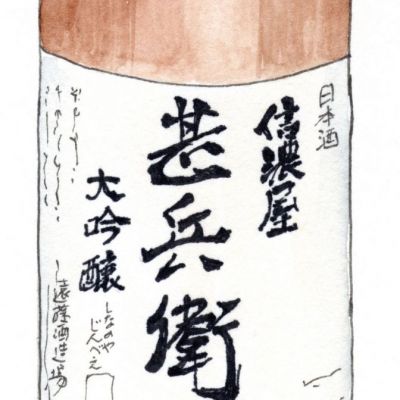 日本酒
信濃屋
甚兵衛
大吟醸
しなのや
じんべえ
遠藤酒造場